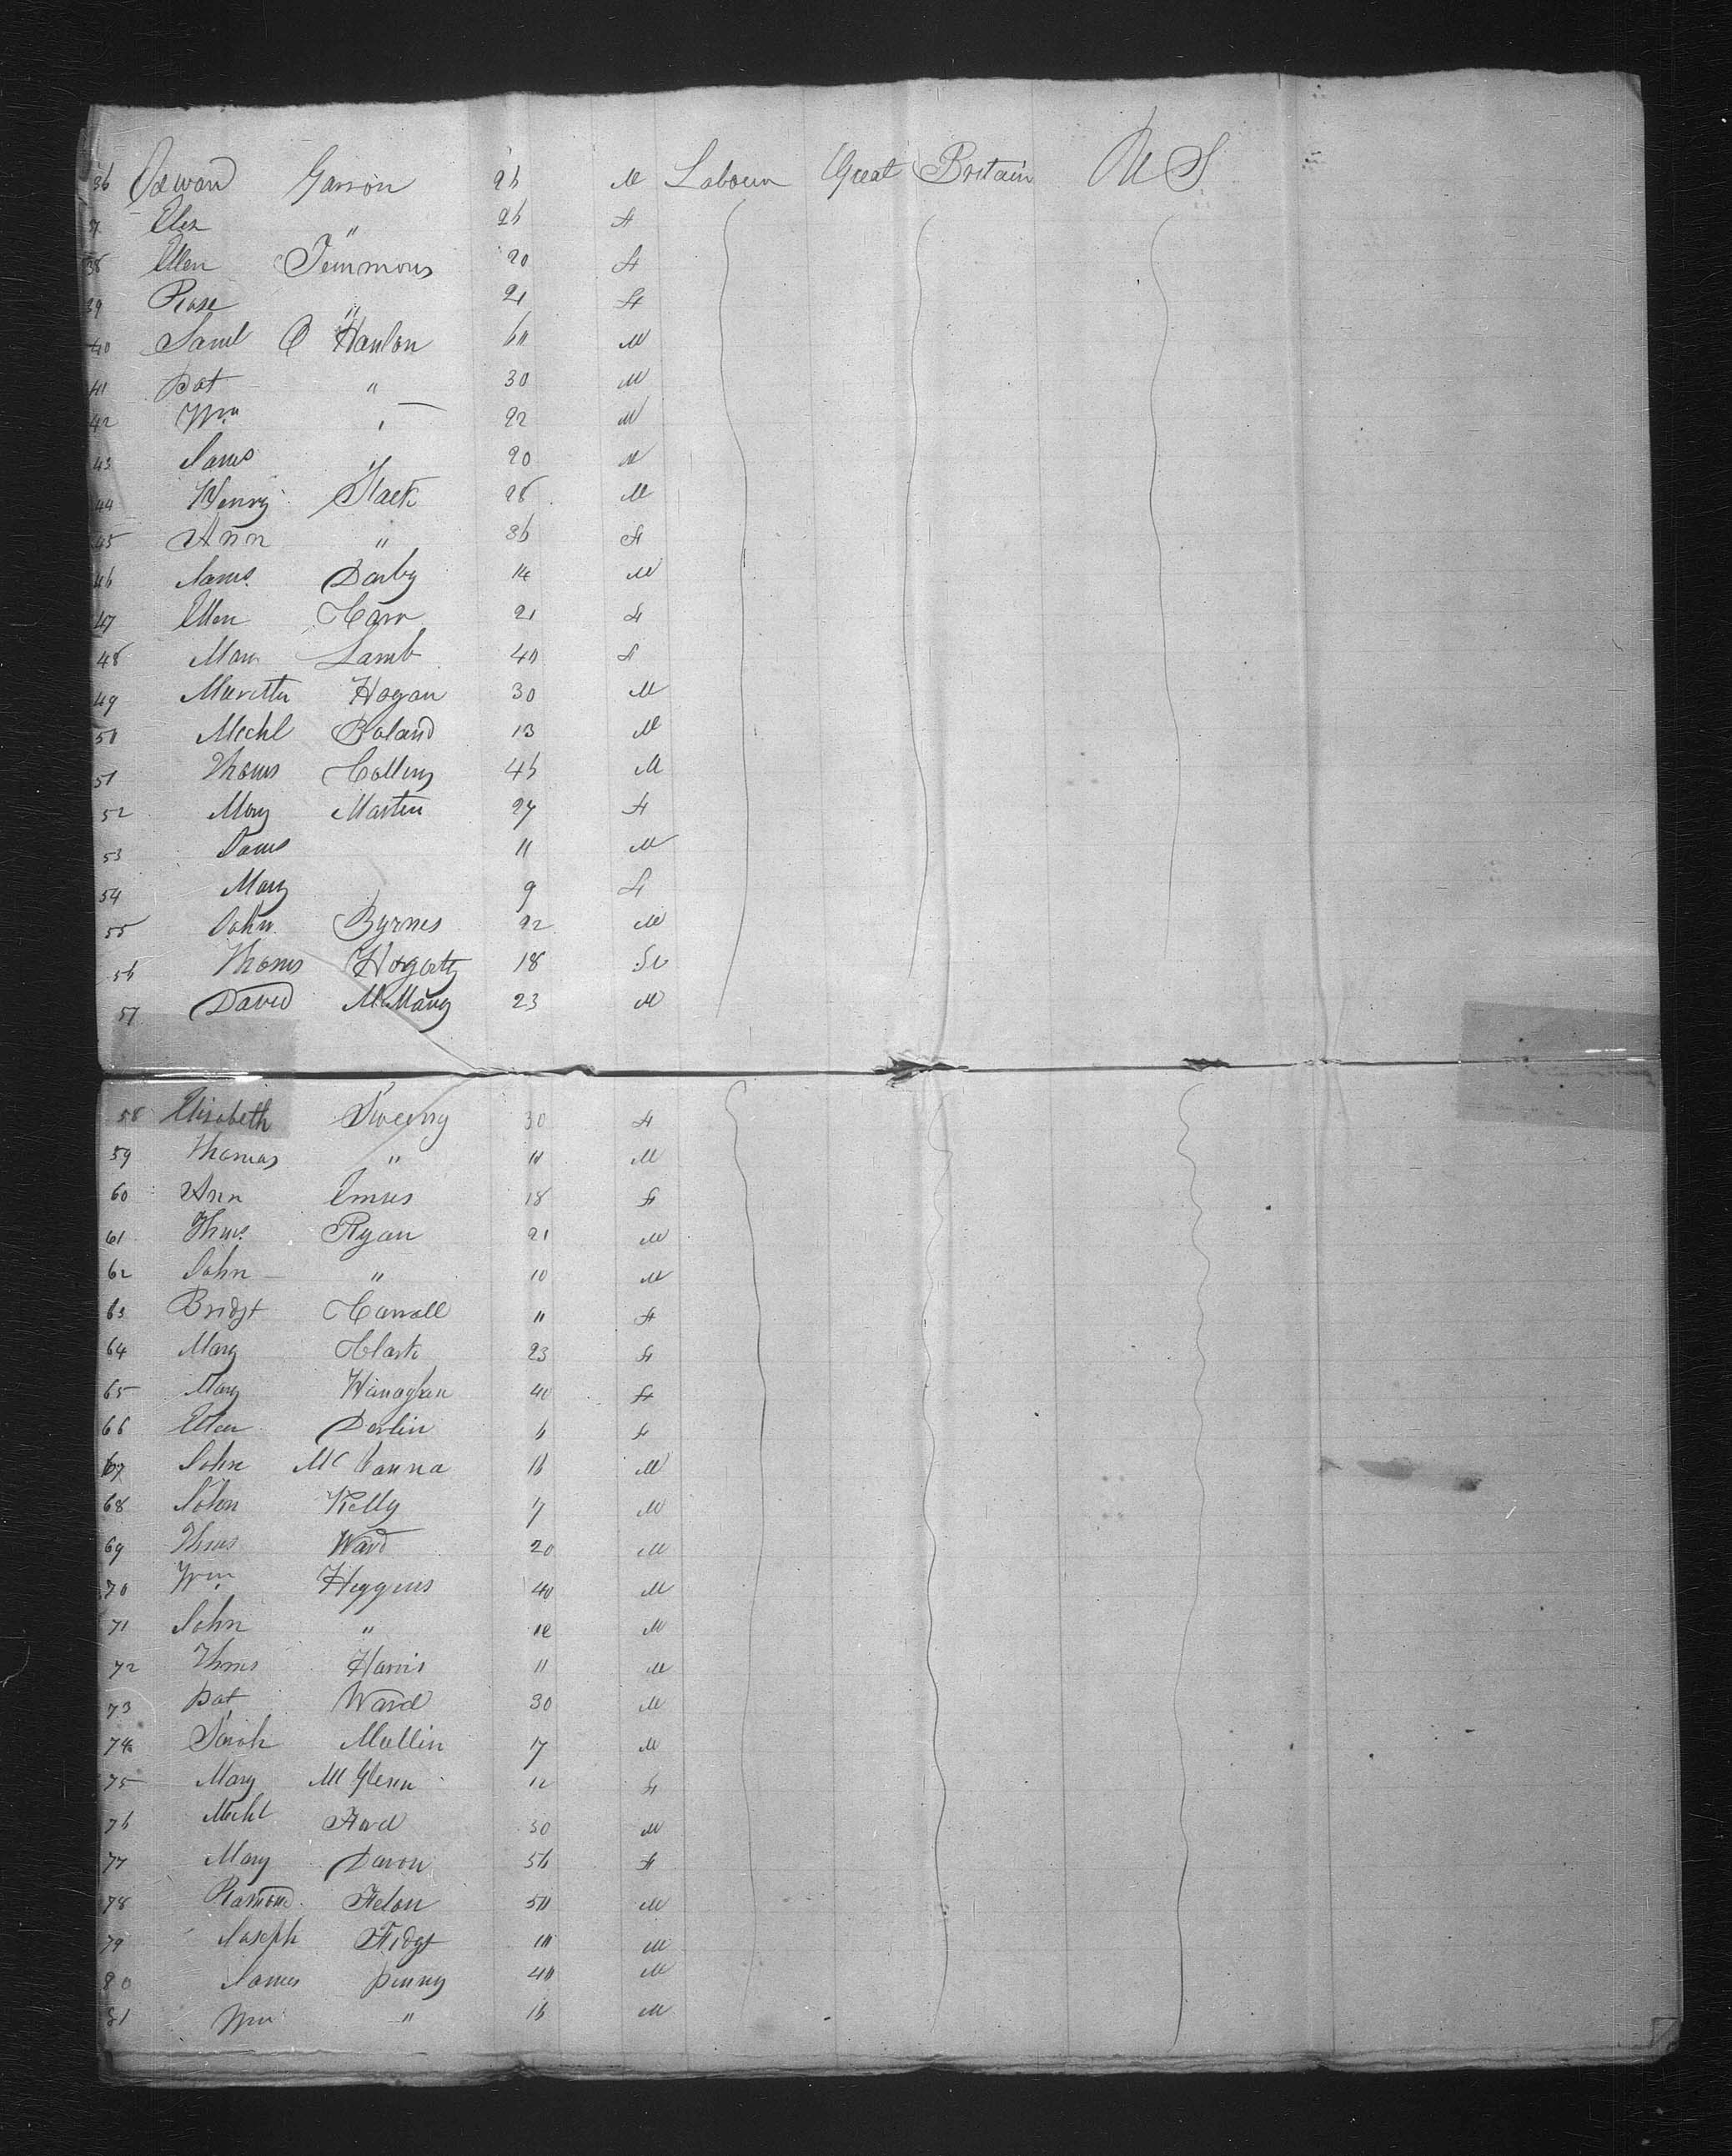 36 Edward Garron 26 M Labour Great Britain U S
37 Elis " 26 F
38 Ellen Timmons 20 F
39 Rose " 21 F
40 Saml O Hanlon 60 M
41 Pat " 30 M
42 Wm " 22 M
43 James " 20 M
44 Henry Slack 28 M
45 Ann " 36 F
46 James Darby 14 M
47 Ellen Carr 21 F
48 Mary Lamb 40 F
49 Hogan 30 M
50 Michl Boland 13 M
51 Thoms Collins 46 M
52 Mary Martin 27 F
53 James 11 M
54 Mary 9 F
55 John Byrnes 22 M
56 Thoms Hogarty 18 M
57 David 23 M
58 Elisabeth Sweeny 30 F
59 Thomas " 11 M
60 Ann 18 F
61 Thms. Ryan 21 M
62 John " 10 M
63 Bridgt Carroll 11 F
64 Mary Clark 23 F
65 Mary Hanaghan 40 F
66 Ellen Devlin 6 F
67 John Mc Kanna 16 M
68 John Kelly 7 M
69 Thms Ward 20 M
70 Wm Higgins 40 M
71 John " 12 M
72 Thms Harris 11 M
73 Pat Ward 30 M
74 Sarah Mullin 17 M
75 Mary Mc Glenn 12 F
76 Michl Ford 30 M
77 Mary 56 F
78 Felon 50 M
79 Joseph 10 M
80 James Penny 40 M
81 Wm " 16 M